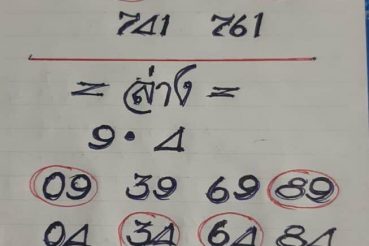 741 761
= ล่าง =
9 • 4
09 39 69 89
04 34 64 84